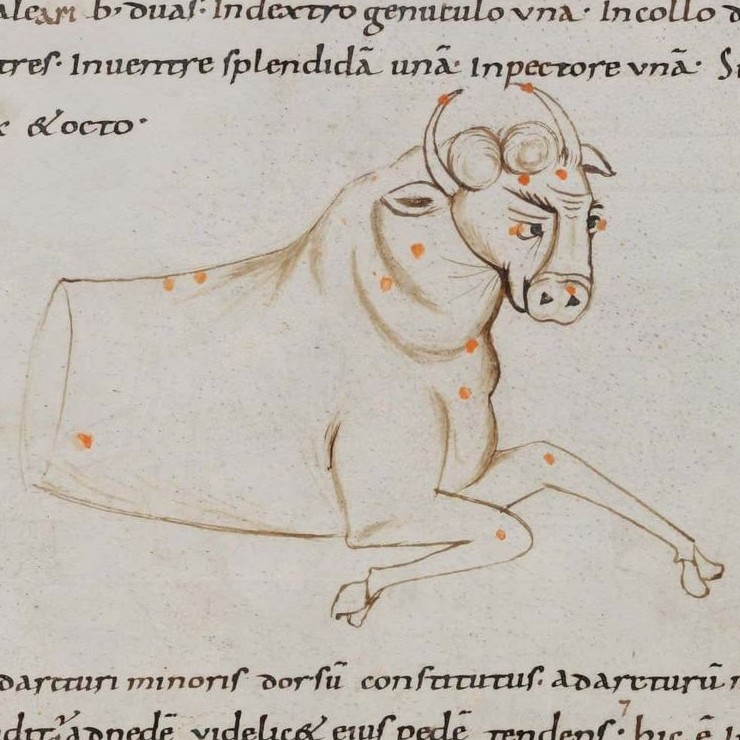 b; duas· In dextro genuculo una· In collo
tres· In uentre splendidā unā· In pectore unā·
& octo·
arcturi minoris dorsū constitutus· ad arcturū
ad pedē videlic& eius pedē tendens· hic ē